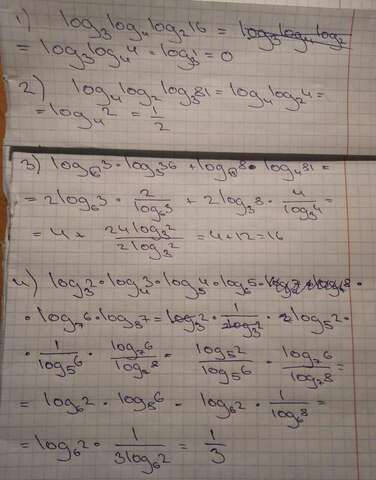 1) log₃log₄log₂16 =
= log₃log₄4 = log₃1 = 0
2) log₄log₂log₃81 = log₄log₂4 =
= log₄2 = 1/2
3) log₆3 · log₃36 + log₃8 · log₄81 =
= 2log₆3 · 2/log₆3 + 2log₃8 · 4/log₃4 =
= 4 + 24log₃2/2log₃2 = 4+12=16
4) log₃2 · log₄3 · log₅4 · log₆5 ·
· log₇6 · log₈7 = log₃2 · 1/2log₃2 · 2log₅2 ·
· 1/log₅6 · log₇6/log₇8 = log₅2/log₅6 · log₇6/log₇8 =
= log₆2 · log₈6 = log₆2 · 1/log₆8 =
= log₆2 · 1/3log₆2 = 1/3